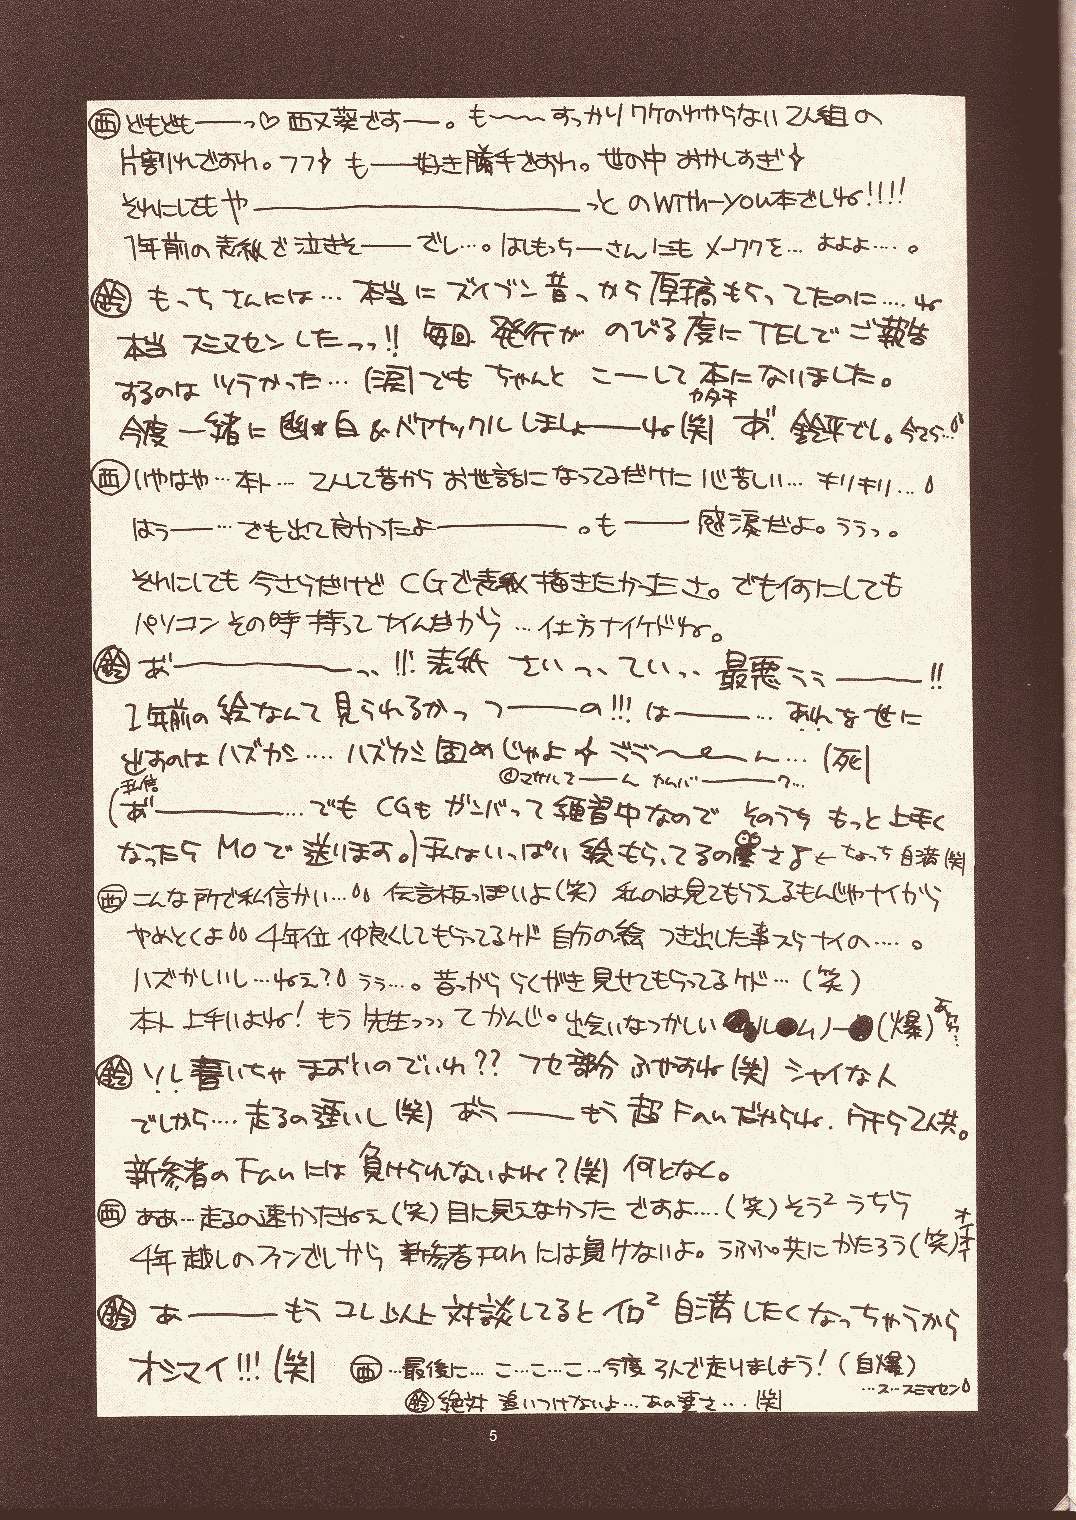 ㊄ どもども――っ♡ 西又葵です―。も~~~すっかりワケのわからない2人組の
片割れでおわ。フフ✧ も――好き勝手でおわ。世の中 おかしすぎ✧
それにしても や――――――――っと のWith-you本でしね!!!!
1年前の表紙で泣きそ――でし…。はしもっちーさんにもメーワクを… およよよ…。
鈴 もっちさんには… 本当に ズイブン昔っから厚稿もらってたのに…. ね
本当 スミマセンしたっっ!! 毎回 発行が のびる度にTELでご報告
するのは ツラかった…(涙)でも ちゃんと こーして 本になりました。
カタチ
今度 一緒に 幽★白 & ベアナックル しましょ――ね(笑) あ゛ 鈴平でし。今さら…
西 いやはや…本ト… 2人して昔から お世話になってるだけに 心苦しい… キリキリ…
はぅ――…でも出て良かったよ――――。も――感涙だよ。ううっ。
それにしても 今さらだけど CGで表紙描きたかったさ。でも何にしても
パソコンその時持ってナイんだから …仕方ナイケドね。
鈴 あ゛――――っ、!!! 表紙 さいっ、てい、、最悪うう――!!
1年前の絵なんて 見られるかっ つ――の!!! は――… あれを世に
出すのはハズカシ…. ハズカシ固めじゃよ✧ ゴゴ~~ん…(死)
(私信
あ゛――――… でも CGも ガンバって練習中なので そのうち もっと上手く
なったら MOで 送ります。)私はいっぱい 絵もらってるの さよ ← ちょっち 自満(笑)
西 こんな所で私信かい… 伝言板っぽいよ(笑) 私のは見てもらえるもんじゃナイから
やめとくよ 4年位 仲良くしてもらってるケド 自分の絵 つき出した事スらナイの….。
ハズかしいし…ねぇ? ぅぅ…。昔っから らくがき見せてもらってるケド…(笑)
本ト 上手いよね! もう 先生っっって かんじ。出会いなつかしい ●ル●ムノー●(爆)
鈴 ソレ書いちゃ まずいのでわ?? フセ部分 ふやすね(笑) シャイな人
でしから…. 走るの遅いし(笑) あう――もう 超 Fanだからね. ウチら2人共。
新参者のFanには 負けられないよね?(笑) 何となく。
西 ああ…走るの速かったねぇ(笑)目に見えなかった ですよ….(笑)そう² うちら
4年越しのファンでしから 新参者Fanには負けないよ。うふふ。共にかたろう(笑)
オイオイ
鈴 あ――――もう コレ以上 対談してると イロ² 自満したくなっちゃうから
オシマイ!!!(笑) 西 …最後に… こ…こ…こ…今度 3人で走りましよう!(自爆)
…ス…スミマセン
鈴 絶対 追いつけないよ… あの速さ…. (笑)
5